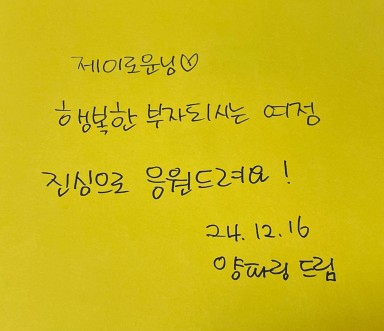 제이로운님♡
행복한 부자되시는 여정
진심으로 응원드려요!
24.12.16
양파링 드림